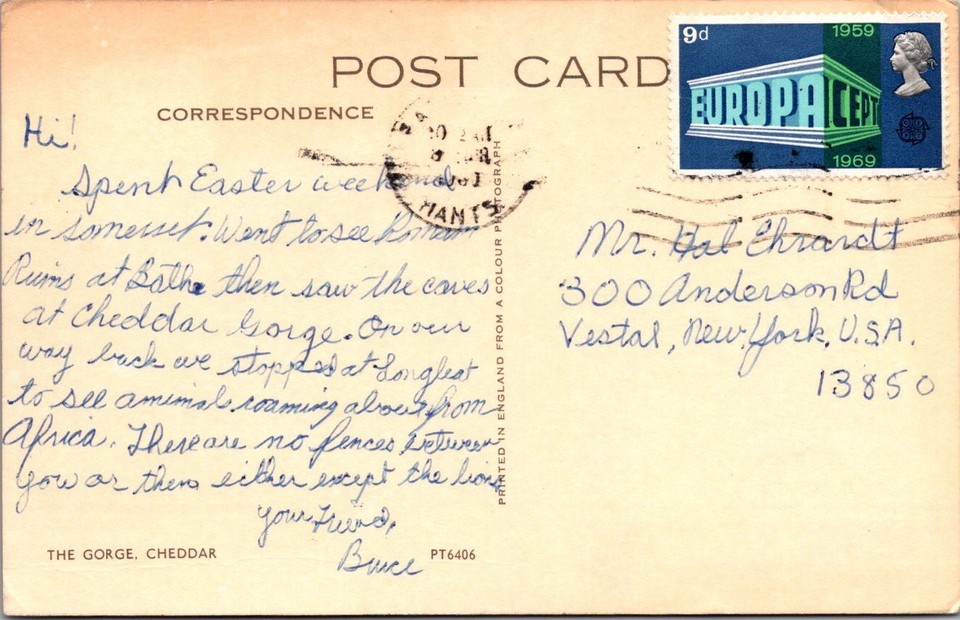 POST CARD
CORRESPONDENCE
9d
1959
EUROPA CEPT
1969
HANTS
Hi!
Spent Easter weekend
in somerset. Went to see Roman
Ruins at Bath then saw the caves
at Cheddar Gorge. On our
way back we stopped at Longleat
to see animals roaming about from
Africa. There are no fences between
you or them either except the lions
Your Friend,
Bruce
THE GORGE, CHEDDAR
PT6406
PRINTED IN ENGLAND FROM A COLOUR PHOTOGRAPH
Mr. Hal Ehrardt
300 Anderson Rd
Vestal, New York, U.S.A.
13850